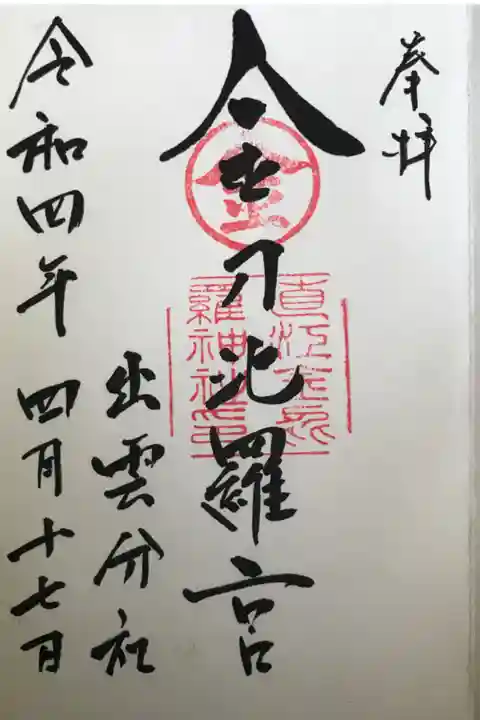 奉拝
金刀比羅宮
金
羅神社印
出雲分社
令和四年 四月十七日